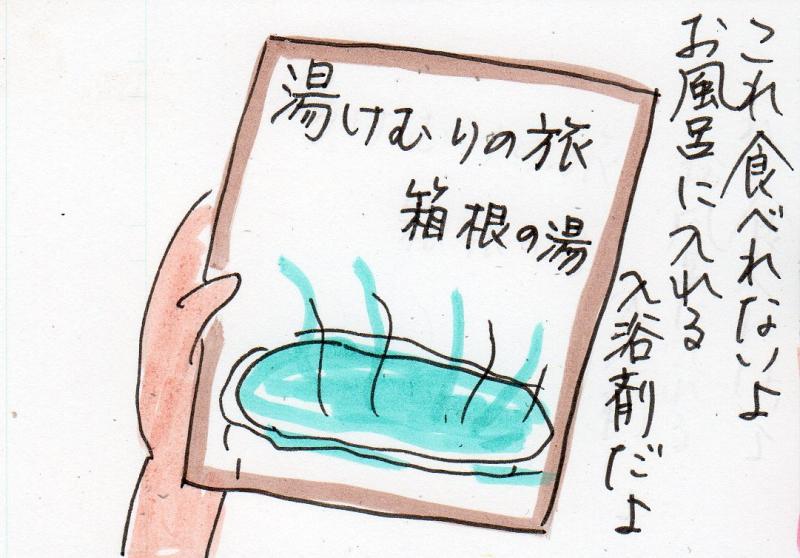 これ食べれないよ
お風呂に入れる
入浴剤だよ
湯けむりの旅
箱根の湯